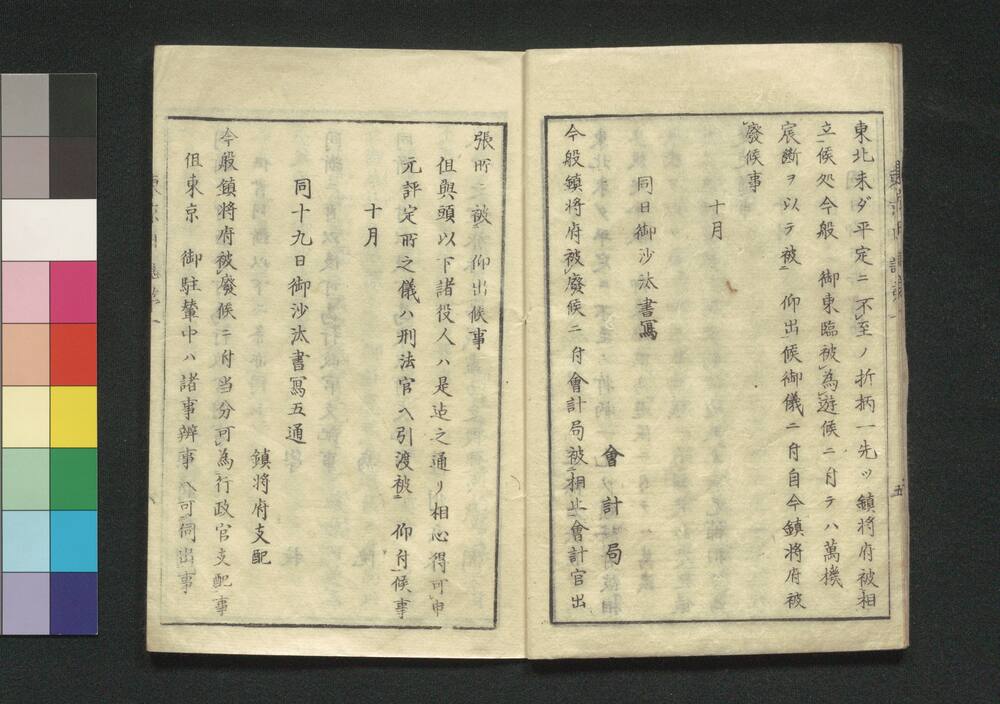 東北未ダ平定ニ不至ノ折柄一先ッ鎮将府被相
立候処今般　御東臨被為遊候ニ付テハ萬機
宸断ヲ以テ被　仰出候御儀ニ付自今鎮将府被
廢候事
十月
同日御沙汰書寫
會計局
今般鎮将府被廢候ニ付會計局被相止會計官出
張所ニ被　仰出候事
但與頭以下諸役人ハ是迠之通リ相心得可申
元評定所之儀ハ刑法官ヘ引渡被　仰付候事
十月
同十九日御沙汰書寫五通
鎮将府支配
今般鎮将府被廢候ニ付当分可為行政官支配事
但東京　御駐輦中ハ諸事辨事ヘ可伺出事
五